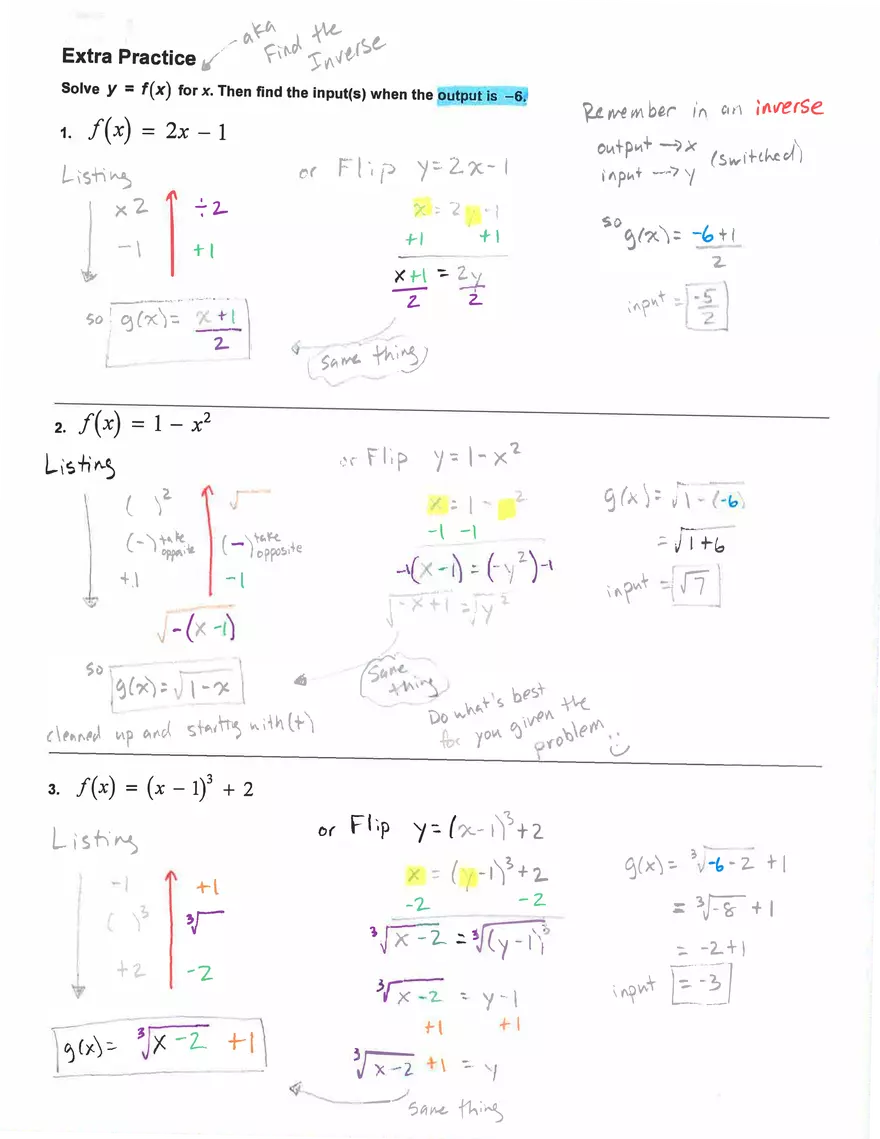 aka
Find the
Inverse
Extra Practice
Solve y = f(x) for x. Then find the input(s) when the output is −6.
Remember in an inverse
output → x
input → y
(switched)
1. f(x) = 2x − 1
Listing
x 2 ÷ 2
− 1 + 1
so g(x) = x + 1 / 2
or Flip y = 2x − 1
x = 2y − 1
+1 +1
x + 1 = 2y
2 2
same thing
so g(x) = −6 + 1 / 2
input = −5 / 2
2. f(x) = 1 − x²
Listing
( )² √
(−) take opposite (−) take opposite
+1 −1
√−(x − 1)
so g(x) = √1 − x
cleaned up and starting with (+)
or Flip y = 1 − x²
x = 1 − ²
−1 −1
−1(x − 1) = (−y²)−1
√−x + 1 = √y²
Same thing
Do what's best
for you given the
problem
g(x) = √1 − (−6)
= √1 + 6
input = √7
3. f(x) = (x − 1)³ + 2
Listing
−1 +1
( )³ ³√
+2 −2
g(x) = ³√x − 2 + 1
or Flip y = (x − 1)³ + 2
x = (y − 1)³ + 2
−2 −2
³√x − 2 = ³√(y − 1)³
³√x − 2 = y − 1
+1 +1
³√x − 2 + 1 = y
same thing
g(x) = ³√−6 − 2 + 1
= ³√−8 + 1
= −2 + 1
input = −3